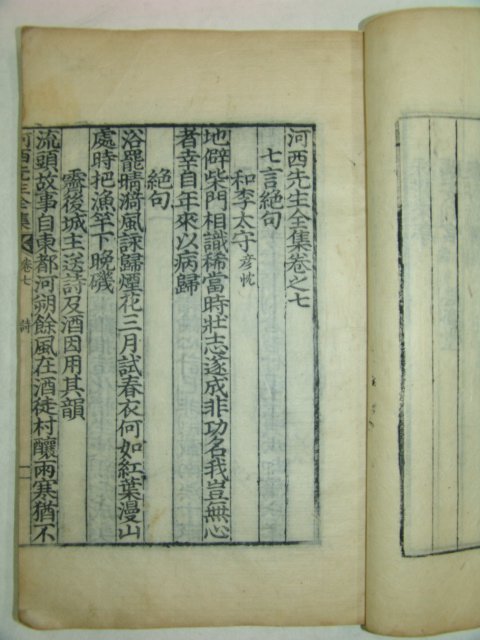 河西先生全集卷之七
七言絶句
和李太守彦忱
地僻柴門相識稀當時壯志遂成非功名我豈無心
者幸自年來以病歸
絶句
浴罷晴漪風詠歸煙花三月試春衣何如紅葉漫山
處時把漁竿下晩磯
霽後城主送詩及酒因用其韻
流頭故事自東都河朔餘風在酒徒村釀兩寒猶不
河西先生全集 卷七 詩 一